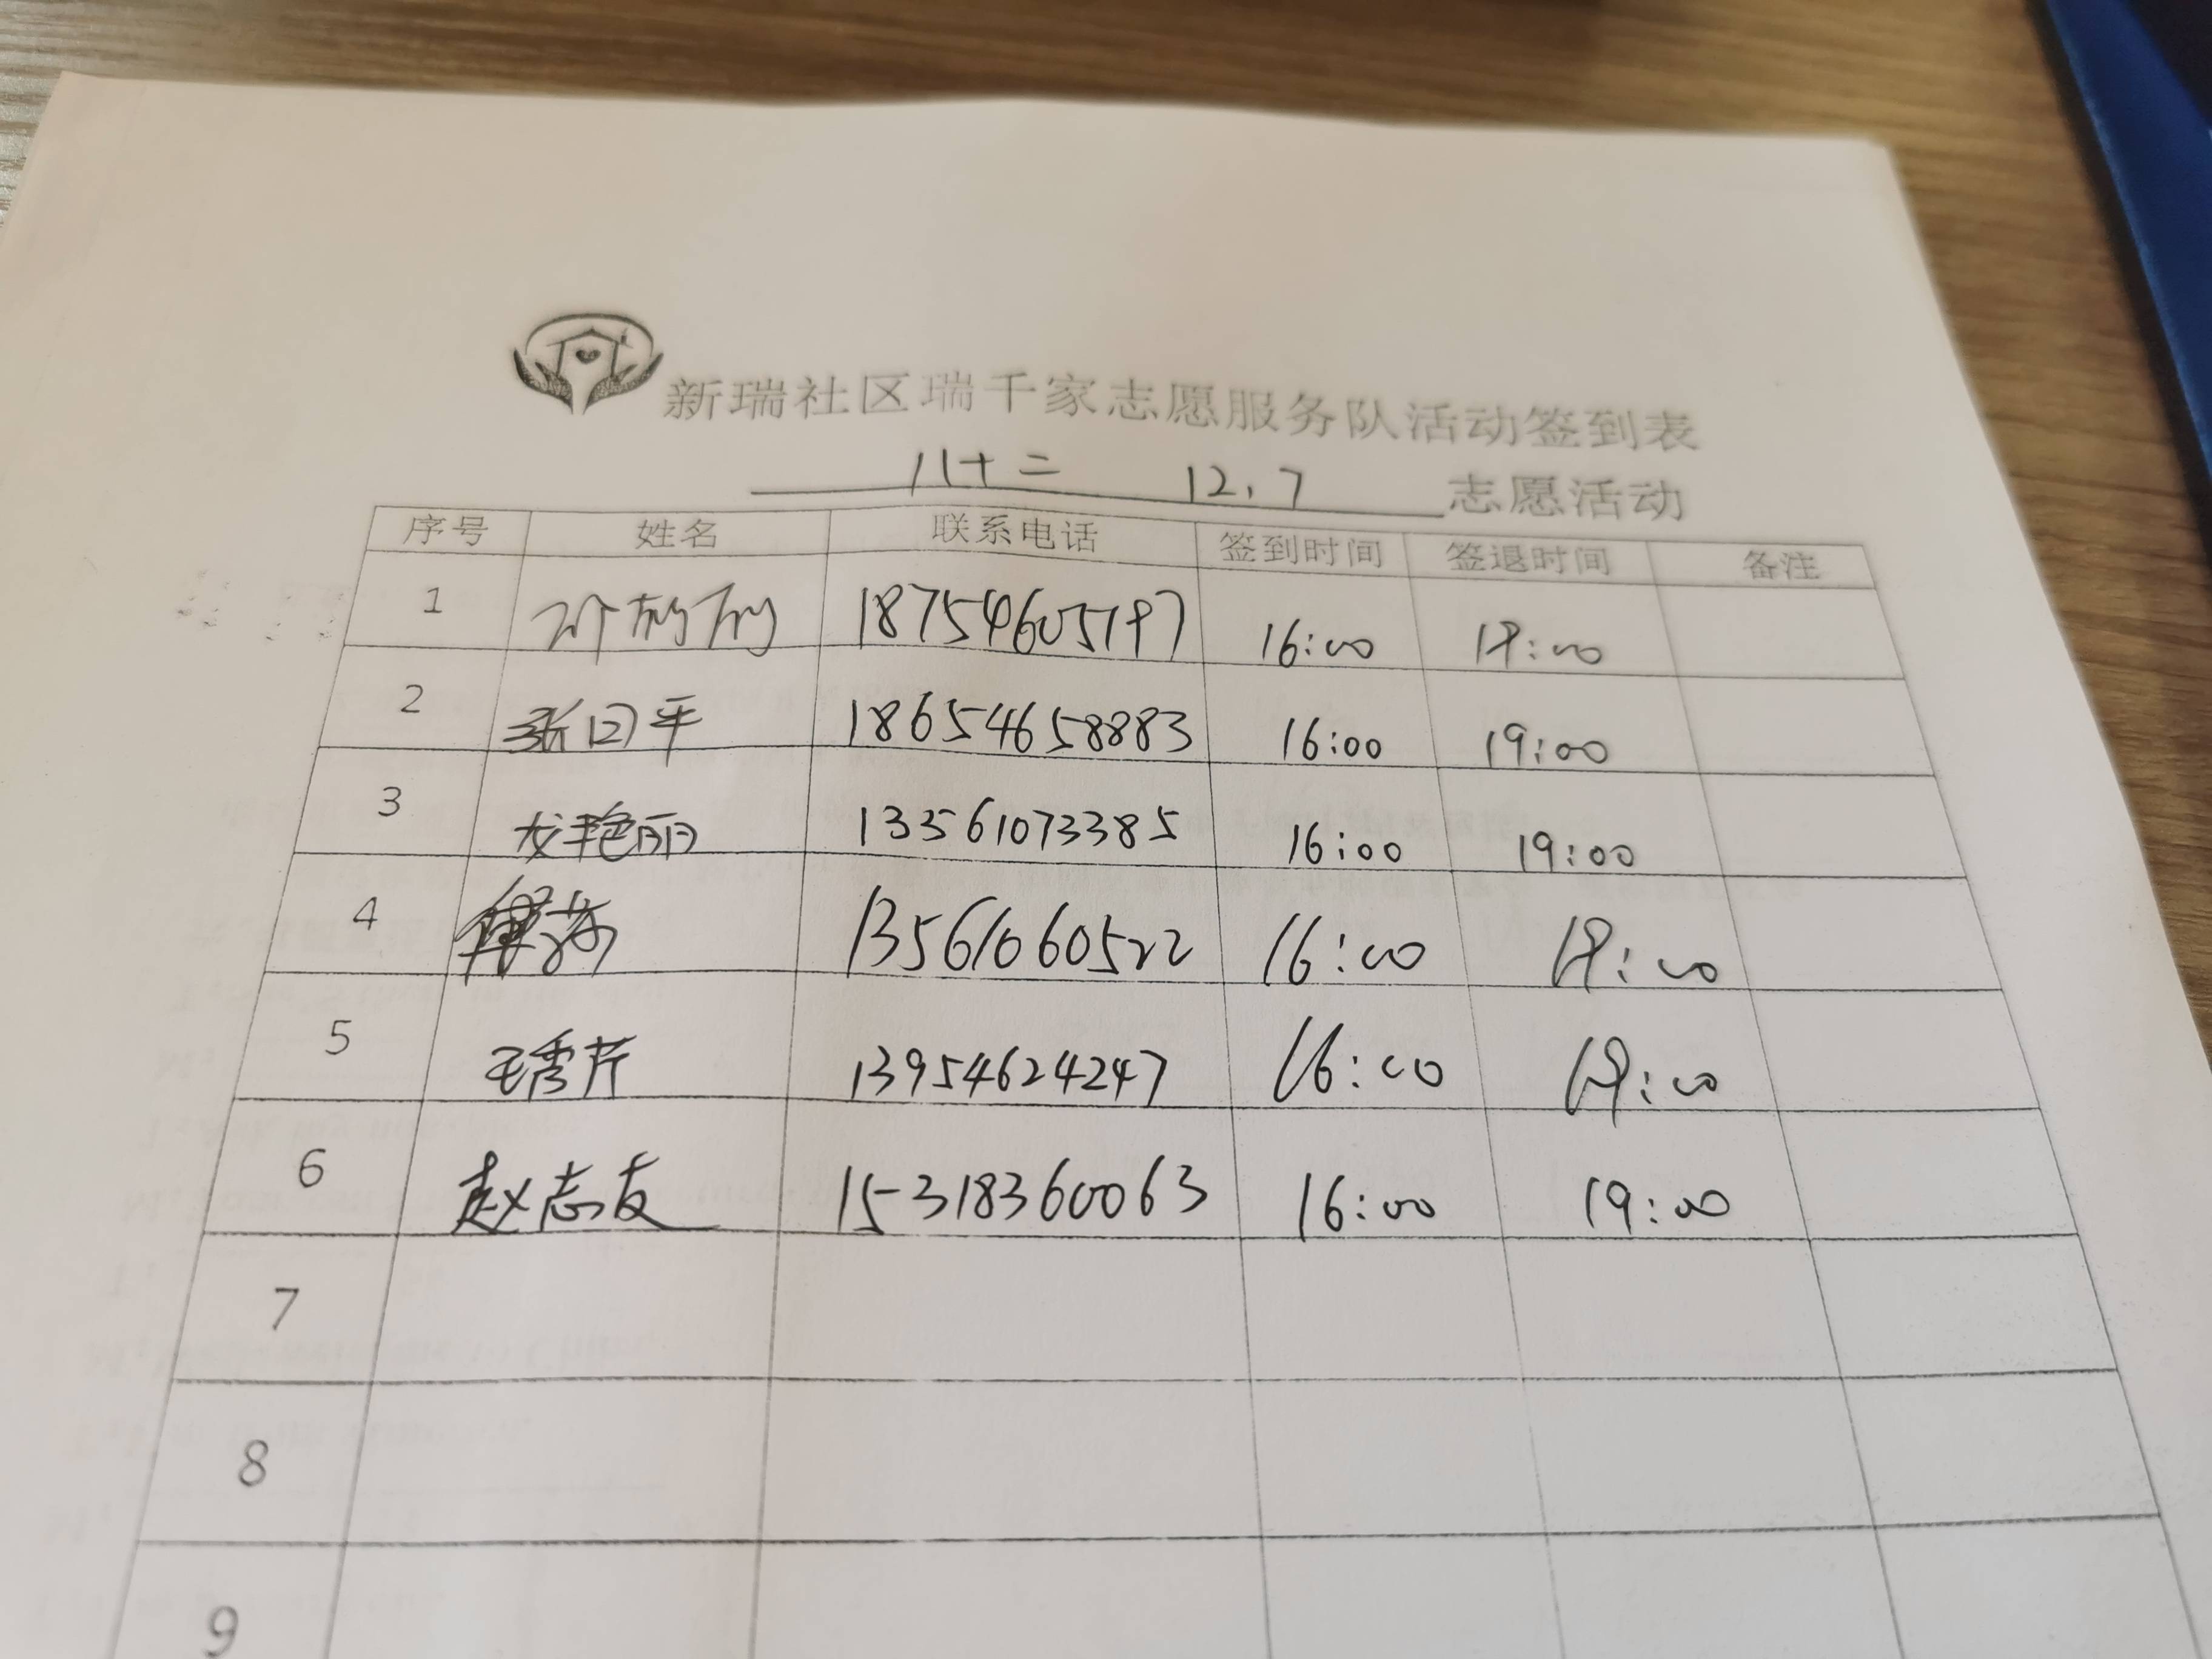 新瑞社区瑞千家志愿服务队活动签到表
八十二 12.7 志愿活动
序号 姓名 联系电话 签到时间 签退时间 备注
1 18754605797 16:00 19:00
2 张回平 18654658883 16:00 19:00
3 龙艳丽 13561073385 16:00 19:00
4 13561060522 16:00 19:00
5 王秀芹 13954624247 16:00 19:00
6 赵志友 15318360063 16:00 19:00
7
8
9